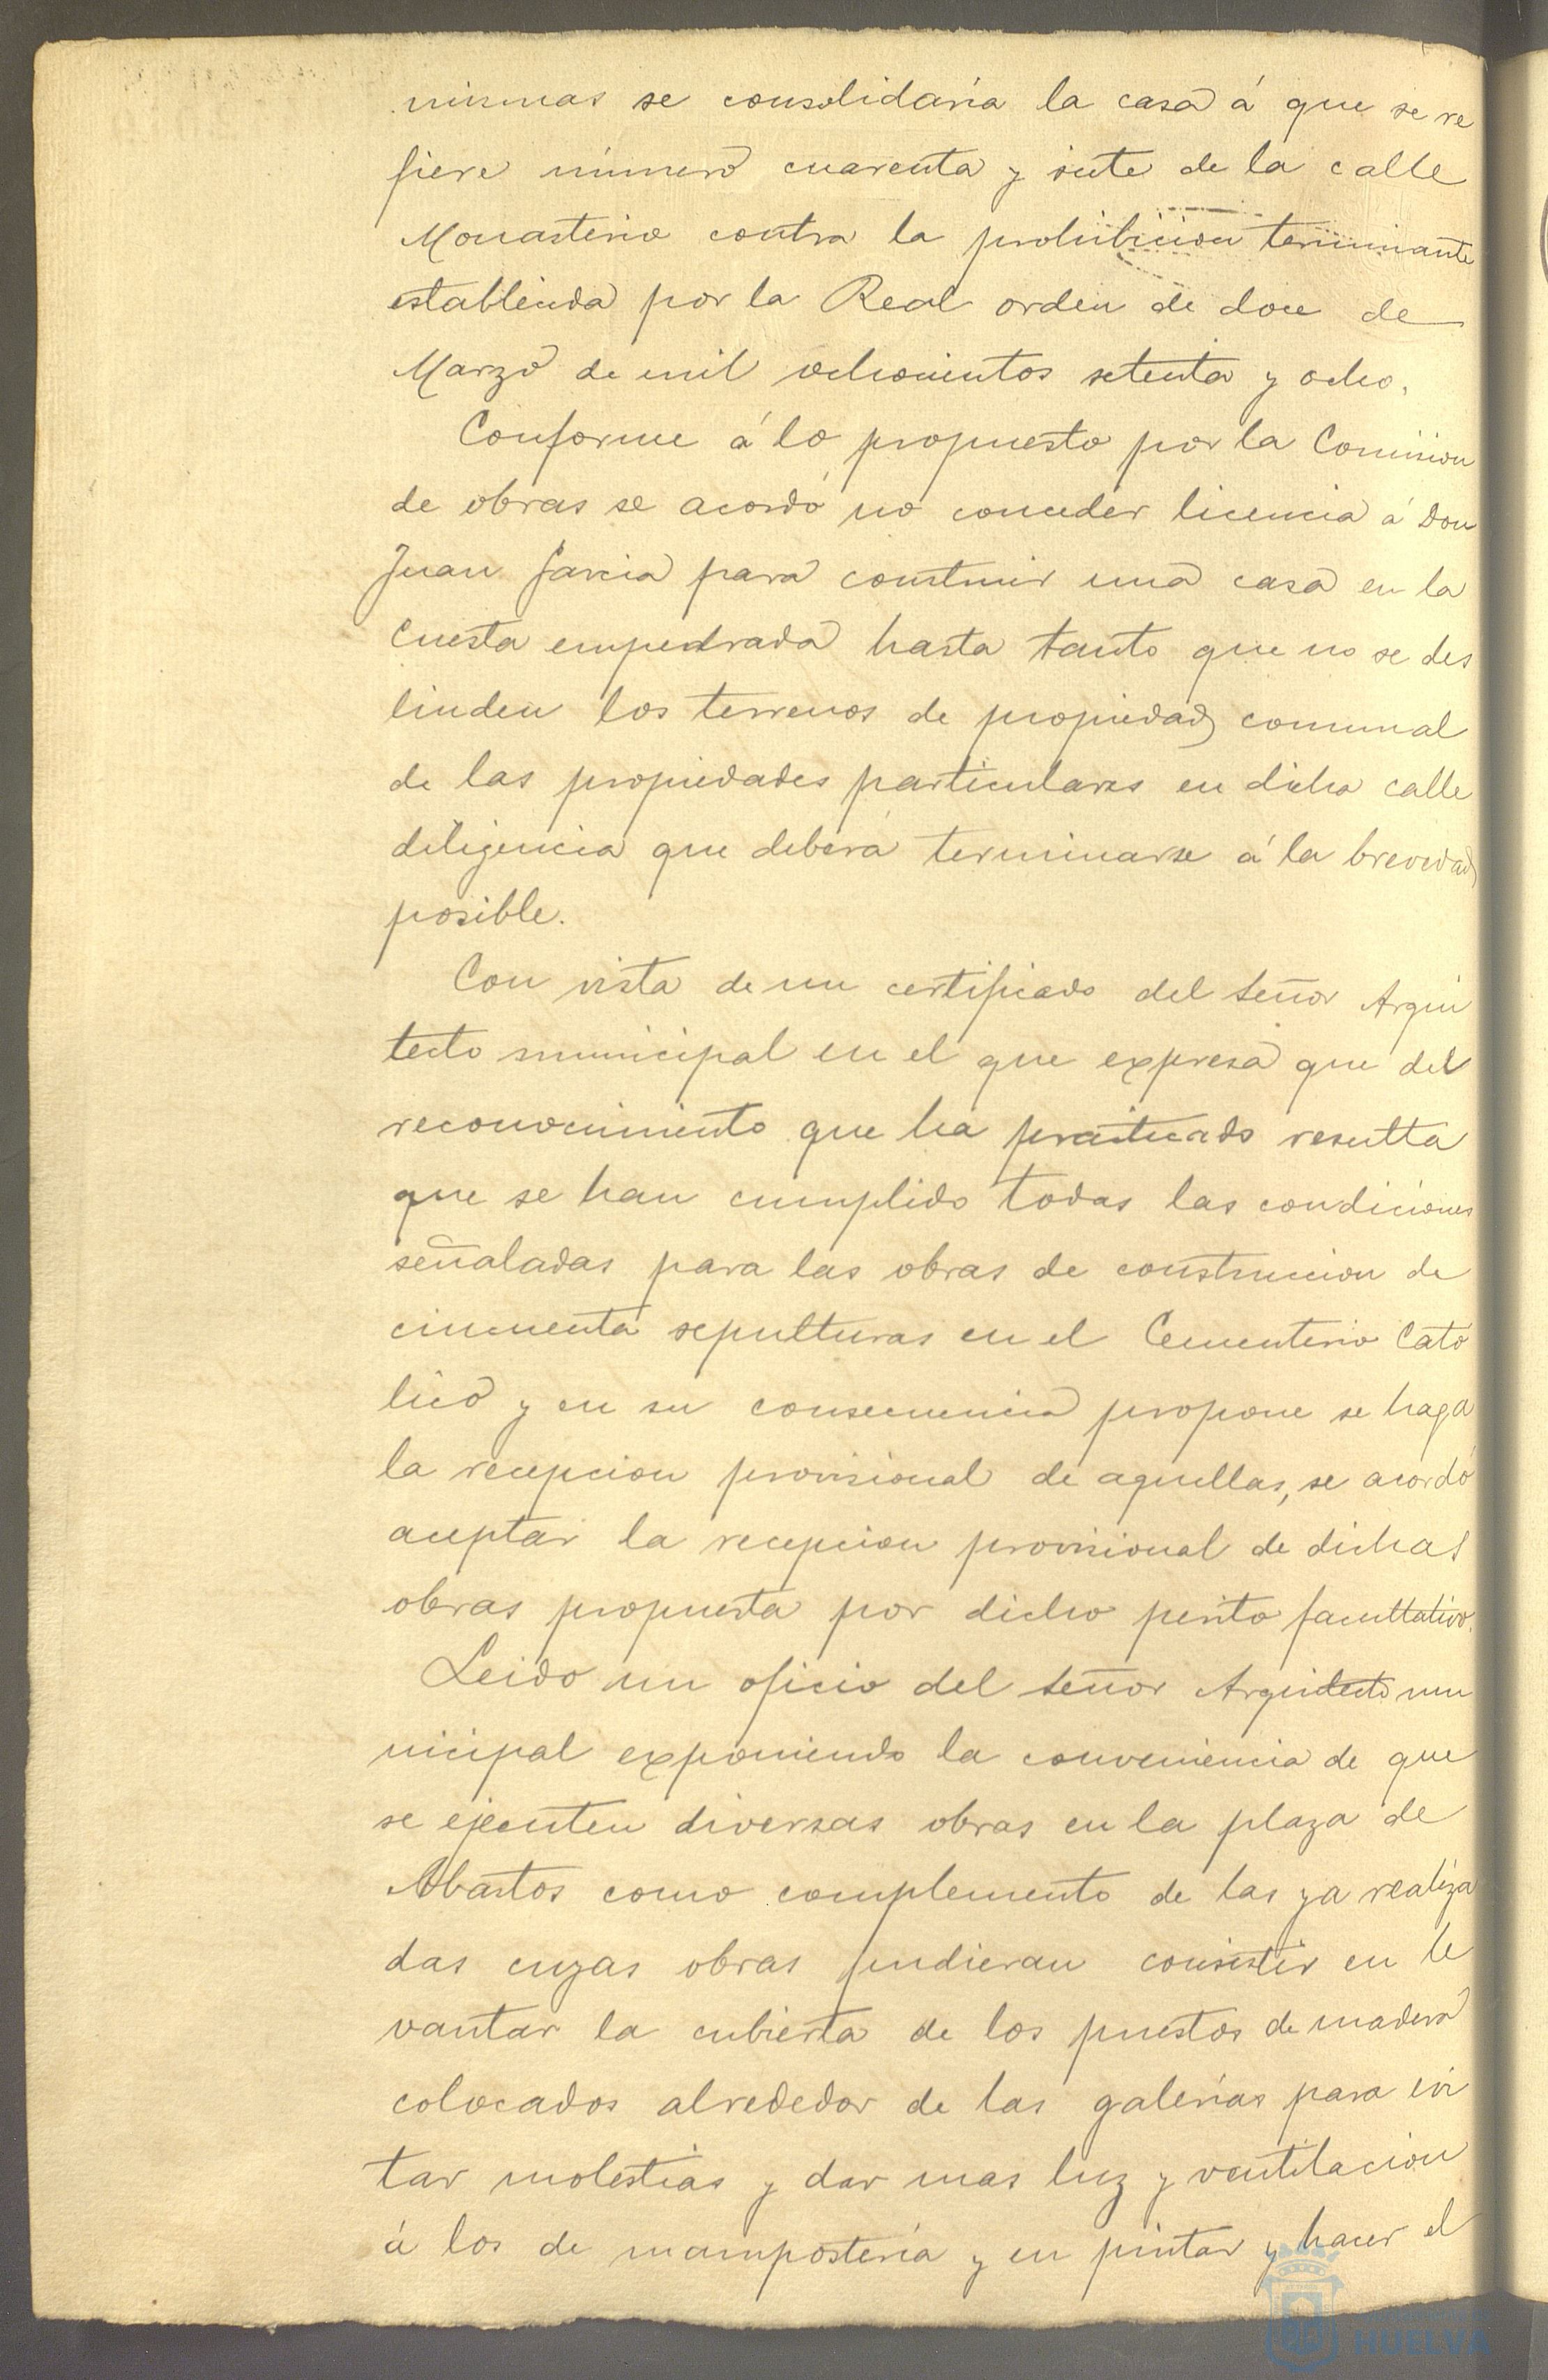 mismas se consolidaria la casa á que se re
fiere número cuarenta y siete de la calle
Monasterio contra la prohibicion terminante
establecida por la Real orden de doce de
Marzo de mil ochocientos setenta y ocho.
Conforme á lo propuesto por la Comision
de obras se acordó no conceder licencia á Don
Juan Garcia para construir una casa en la
Cuesta empedrada hasta tanto que no se des
linden los terrenos de propiedad comunal
de las propiedades particulares en dicha calle
diligencia que deberá terminarse á la brevedad
posible.
Con vista de un certificado del Señor Arqui
tecto municipal en el que expresa que del
reconocimiento que ha practicado resulta
que se han cumplido todas las condiciones
señaladas para las obras de construccion de
cincuenta sepulturas en el Cementerio Cató
lico y en su consecuencia propone se haga
la recepcion provisional de aquellas, se acordó
aceptar la recepcion provisional de dichas
obras propuesta por dicho perito facultativo.
Leido un oficio del Señor Arquitecto mu
nicipal exponiendo la conveniencia de que
se ejecuten diversas obras en la plaza de
Abastos como complemento de las ya realiza
das cuyas obras pudieran consistir en le
vantar la cubierta de los puestos de madera
colocados alrededor de las galerias para evi
tar molestias y dar mas luz y ventilacion
á los de mamposteria y en pintar y hacer el
HUELVA